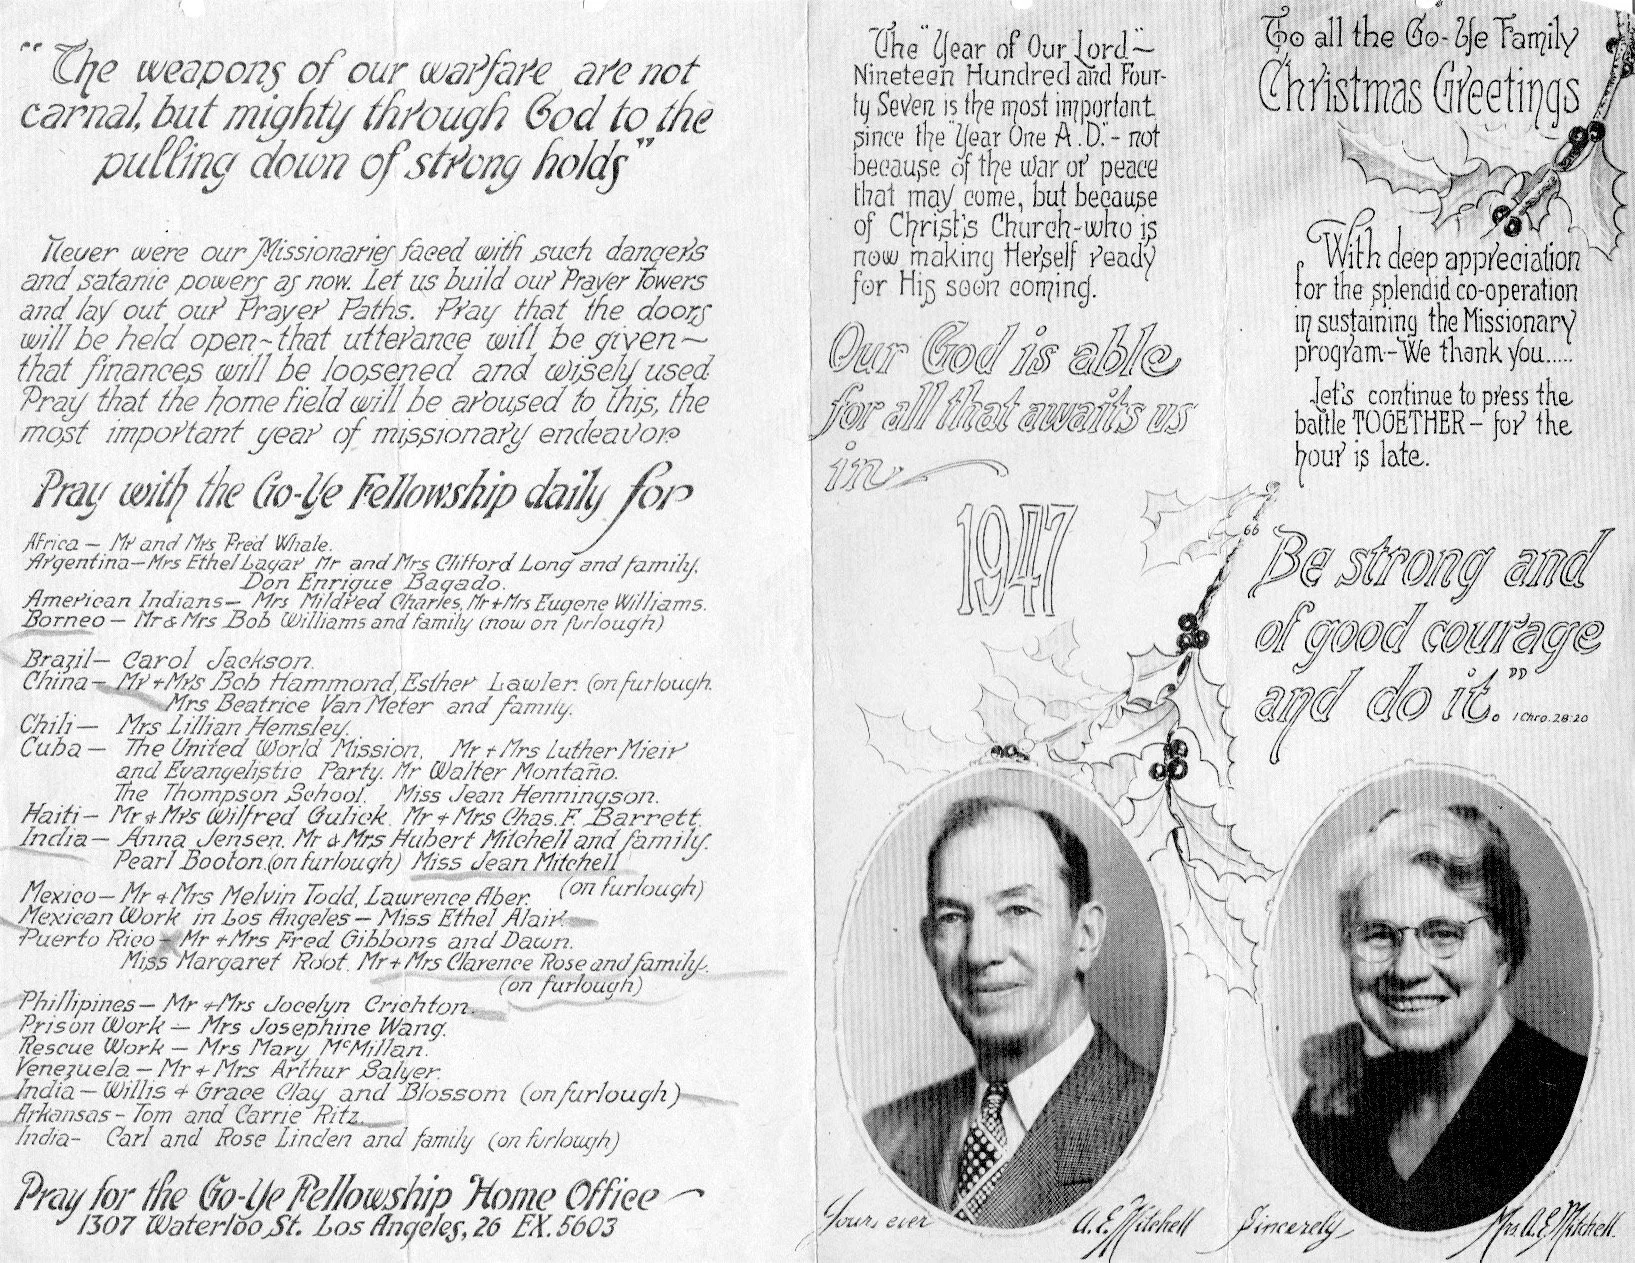 "The weapons of our warfare are not
carnal, but mighty through God to the
pulling down of strong holds"
Never were our Missionaries faced with such dangers
and satanic powers as now. Let us build our Prayer Towers
and lay out our Prayer Paths. Pray that the doors
will be held open~that utterance will be given~
that finances will be loosened and wisely used.
Pray that the home field will be aroused to this, the
most important year of missionary endeavor
Pray with the Go-Ye Fellowship daily for
Africa - Mr and Mrs Fred Whale.
Argentina-Mrs Ethel Layar Mr and Mrs Clifford Long and family.
Don Enrique Bagado.
American Indians- Mrs Mildred Charles, Mr+Mrs Eugene Williams.
Borneo - Mr & Mrs Bob Williams and family (now on furlough)
Brazil- Carol Jackson.
China- Mr + Mrs Bob Hammond, Esther Lawler (on furlough.
Mrs Beatrice Van Meter and family.
Chili- Mrs Lillian Hemsley.
Cuba - The United World Mission, Mr + Mrs Luther Mieir
and Evangelistic Party. Mr Walter Montaño.
The Thompson School. Miss Jean Henningson.
Haiti - Mr & Mrs Wilfred Gulick. Mr + Mrs Chas. F. Barrett.
India - Anna Jensen. Mr & Mrs Hubert Mitchell and family.
Pearl Booton.(on furlough) Miss Jean Mitchell
(on furlough)
Mexico- Mr + Mrs Melvin Todd, Lawrence Aber.
Mexican Work in Los Angeles - Miss Ethel Alair.
Puerto Rico - Mr + Mrs Fred Gibbons and Dawn.
Miss Margaret Root. Mr + Mrs Clarence Rose and family.
(on furlough)
Phillipines - Mr + Mrs Jocelyn Crichton.
Prison Work - Mrs Josephine Wang.
Rescue Work - Mrs Mary McMillan.
Venezuela - Mr + Mrs Arthur Salyer.
India - Willis + Grace Clay and Blossom (on furlough)
Arkansas - Tom and Carrie Ritz.
India- Carl and Rose Linden and family (on furlough)
Pray for the Go-Ye Fellowship Home Office ~
1307 Waterloo St. Los Angeles, 26 EX. 5603
The "Year of Our Lord"~
Nineteen Hundred and Four-
ty Seven is the most important
since the "Year One A.D." - not
because of the war or peace
that may come, but because
of Christ's Church-who is
now making Herself ready
for His soon coming.
Our God is able
for all that awaits us
in
1947
Yours ever A.E. Mitchell
To all the Go-Ye Family
Christmas Greetings
With deep appreciation
for the splendid co-operation
in sustaining the Missionary
program-We thank you.....
Let's continue to press the
battle TOGETHER - for the
hour is late.
"Be strong and
of good courage
and do it." 1 Chro. 28:20
Sincerely, Mrs A.E. Mitchell.